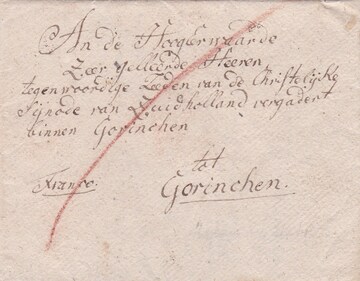 An de Hooglerwaarde
Zeer geleerde Heeren
tegenwoordige Leeden van de Christelijke
Synode van Zuidholland vergadert
binnen Gorinchen
tot
Franco.
Gorinchen.